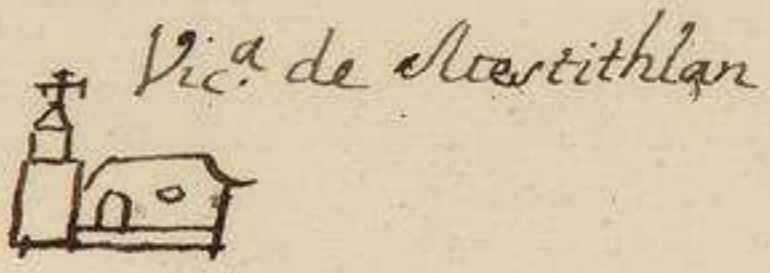 Vic.ª de Mestithlan